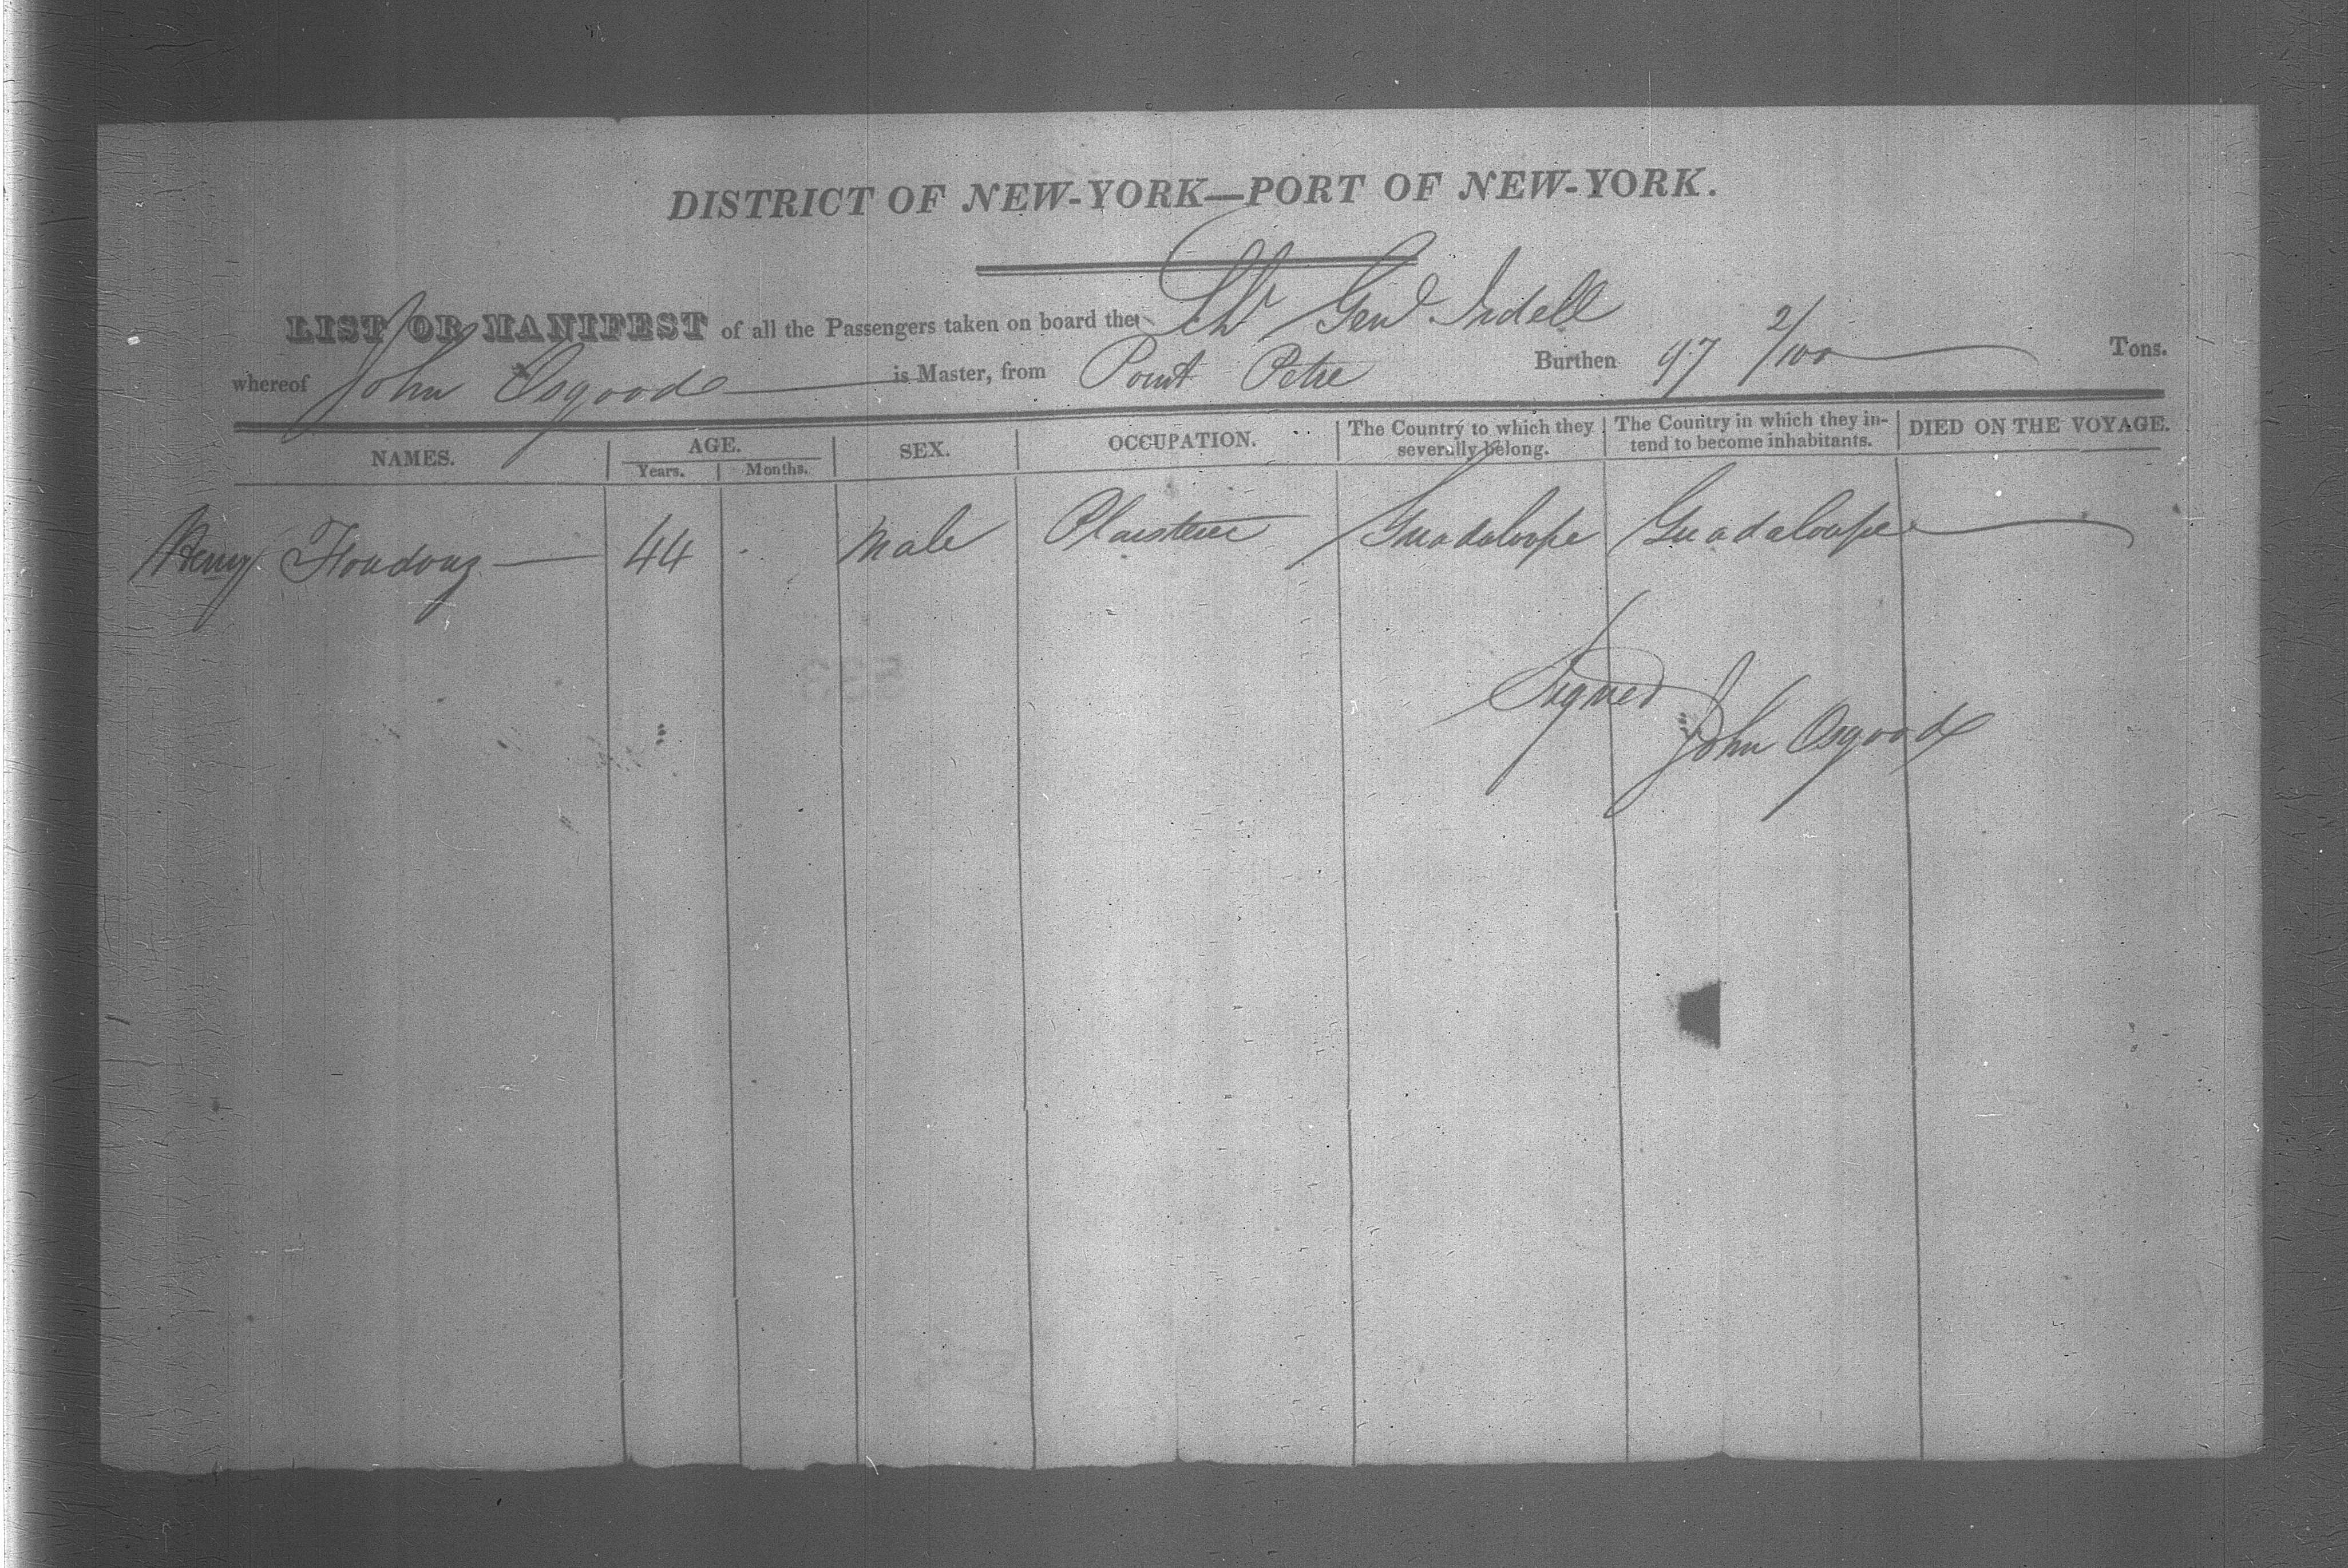 DISTRICT OF NEW-YORK—PORT OF NEW-YORK.
LIST OR MANIFEST of all the Passengers taken on board the Schr Genl
whereof John Osgood is Master, from Point Petre Burthen 97 2/100 Tons.
NAMES. AGE. SEX. OCCUPATION. The Country to which they severally belong. The Country in which they in-tend to become inhabitants. DIED ON THE VOYAGE.
Years. Months.
Henry 44 Male Guadaloupe Guadaloupe
Signed
John Osgood